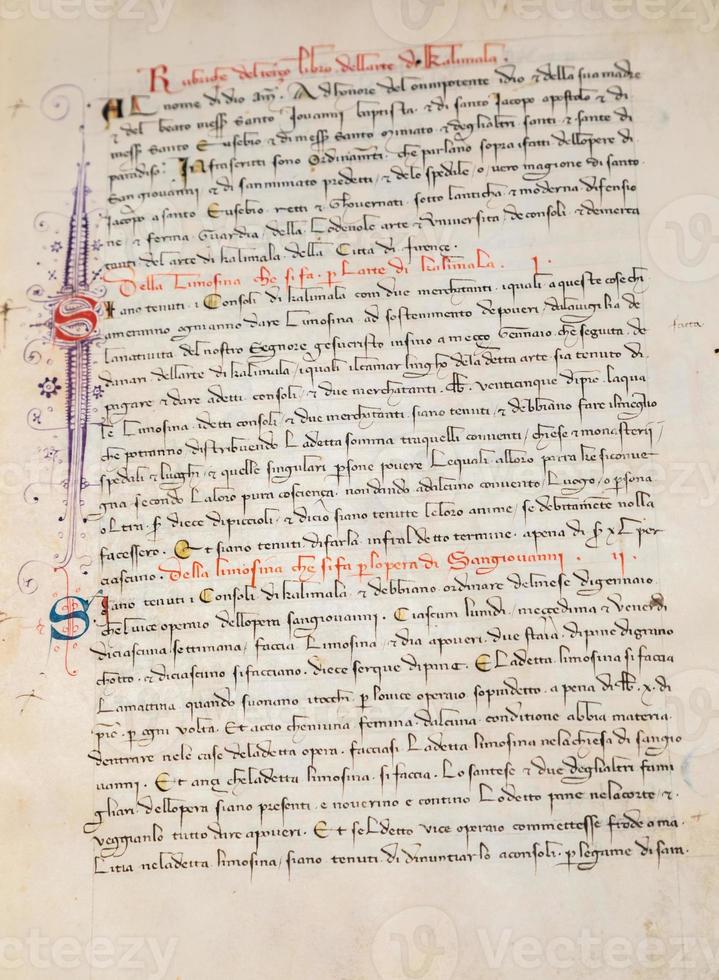 Rubriche del terzo libro dell arte di kalimala.
AL nome di dio Am̄. Ad honore del omnipotente idio & della sua madre
& del beato mess̄ Santo Iouanni baptista & di santo Jacopo apostolo & di
mess̄ Santo Eusebio & di mess̄ Santo miniato & degli altri santi & sante di
paradiso: Infrascritti sono Ordinam̄ti che parlano sopra i fatti dell opere di
San giouanni & di sanminiato predetti & de lo spedale o vero magione di santo
Jacopo a santo Eusebio retti & ghouernati sotto lanticha & moderna difensio
ne & ferma guardia della Lodeuole arte & Vniuersita de consoli & de merca
tanti del arte di kalimala della Citta di firence.
Della Limosina che si fa p Larte di kalimala. I.
Siano tenuti i Consoli di kalimala com due merchatanti i quali a queste cose chi
ameranno ogni anno dare Limosina ad sostenimento de poueri dalla uigilia de
la natiuita del nostro Segnore giesu cristo insino a mecço Gennaio che seguita de
danari dell arte di kalimala i quali il camarlingho dela detta arte sia tenuto di
pagare & dare a detti consoli & due merchatanti. lb̄. venticinque di pic̄. la qua
le Limosina i detti consoli & due merchatanti siano tenuti & debbiano fare il meglio
che potranno distribuendo La detta somma tra quelli conuenti chiese & monasterii
spedali & luoghi & quelle singulari p̄sone pouere Le quali alloro parra che si conue
gna secondo La loro pura coscienca non dando ad alcuno conuento Luogo o p̄sona
oltra s̄. diece di piccioli & dicio siano tenute le loro anime se debitam̄te nolla
facessero. Et siano tenuti di farla infra l detto termine a pena di s̄ xl per
ciascuno. Della limosina che si fa p lopera di San giouanni. II.
Siano tenuti i Consoli di kalimala & debbiano ordinare del mese di gennaio
che l uice operaio dell opera san giouanni. Ciascun lundi mecçedima & venerdi
di ciascuna settimana faccia Limosina & dia a poueri due staia di pane di grano
chotto & di ciascuno si facciano diece serque di pani. E La detta limosina si faccia
La mattina quando suonano i tocchi p lo uice operaio sopradetto a pena di lb̄. x. di
pic̄. p ogni volta. Et accio che niuna femina dalcuna conditione abbia materia
dentrare nele case dela detta opera facciasi La detta limosina nela chiesa di san gio
uanni. Et anci che la detta limosina si faccia Lo santese & due degli altri fami
gliari dell opera siano presenti e nouerino e contino Lo detto pane nela corte &
veggianlo tutto dare a poueri. Et se l detto vice operaio commettesse frode o ma
Litia nela detta limosina siano tenuti di dinuntiarlo a consoli p legame di sam.
facta